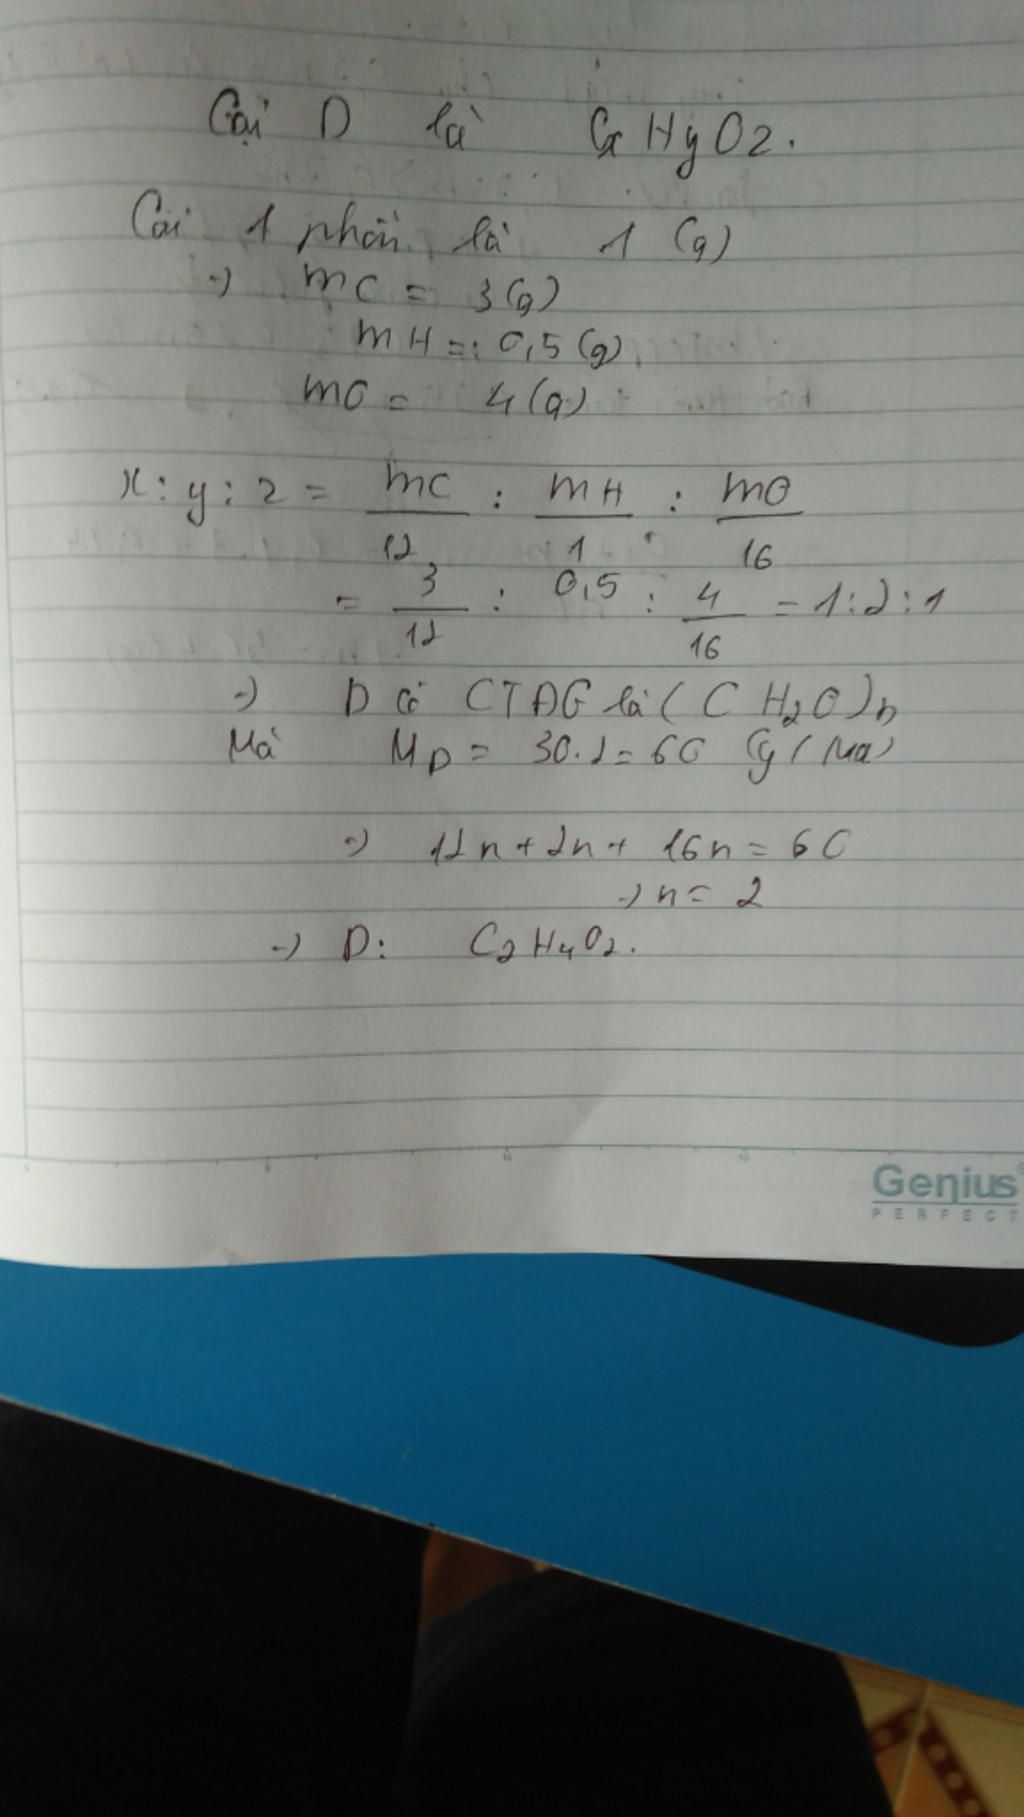 Gọi D là CxHyOz.
Coi 1 phần là 1 (g)
-> mC = 3(g)
mH = 0,5(g)
mO = 4(g)
x : y : z = mC/12 : mH/1 : mO/16
= 3/12 : 0,5 : 4/16 = 1:2:1
-> D có CTĐG là (CH2O)n
Mà MD = 30.2 = 60 (g/mol)
-> 12n + 2n + 16n = 60
-> n = 2
-> D: C2H4O2.
Genius
PERFECT